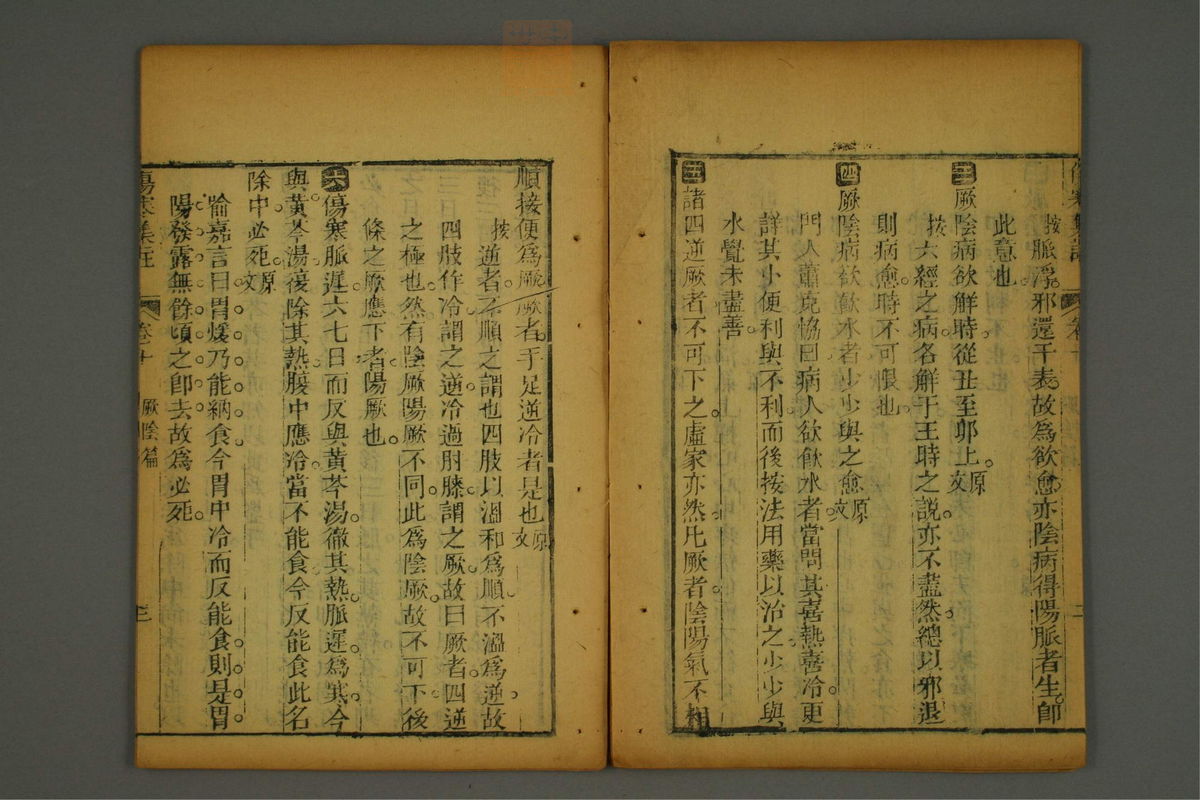 按脈浮邪還于表故為欲愈亦陰病得陽脈者生卽
此意也
三厥陰病欲解時從丑至卯上原文
按六經之病名解于王時之說亦不盡然總以邪退
則病愈時不可限也
四厥陰病欲飮水者少少與之愈原文
門人蕭克協曰病人欲飮水者當問其喜熱喜冷更
詳其小便利與不利而後按法用藥以治之少少與
水覺未盡善
五諸四逆厥者不可下之虛家亦然凡厥者陰陽氣不相
順接便為厥厥者手足逆冷者是也原文
按逆者不順之謂也四肢以溫和為順不溫為逆故
四肢作冷謂之逆冷過肘膝謂之厥故曰厥者四逆
之極也然有陰厥陽厥不同此為陰厥故不可下後
條之厥應下者陽厥也
六傷寒脈遲六七日而反與黃芩湯徹其熱脈遲為寒今
與黃芩湯復除其熱腹中應冷當不能食今反能食此名
除中必死原文
喻嘉言曰胃煖乃能納食今胃中冷而反能食則是胃
陽發露無餘頃之卽去故為必死
傷寒集註
卷十
厥陰篇
三